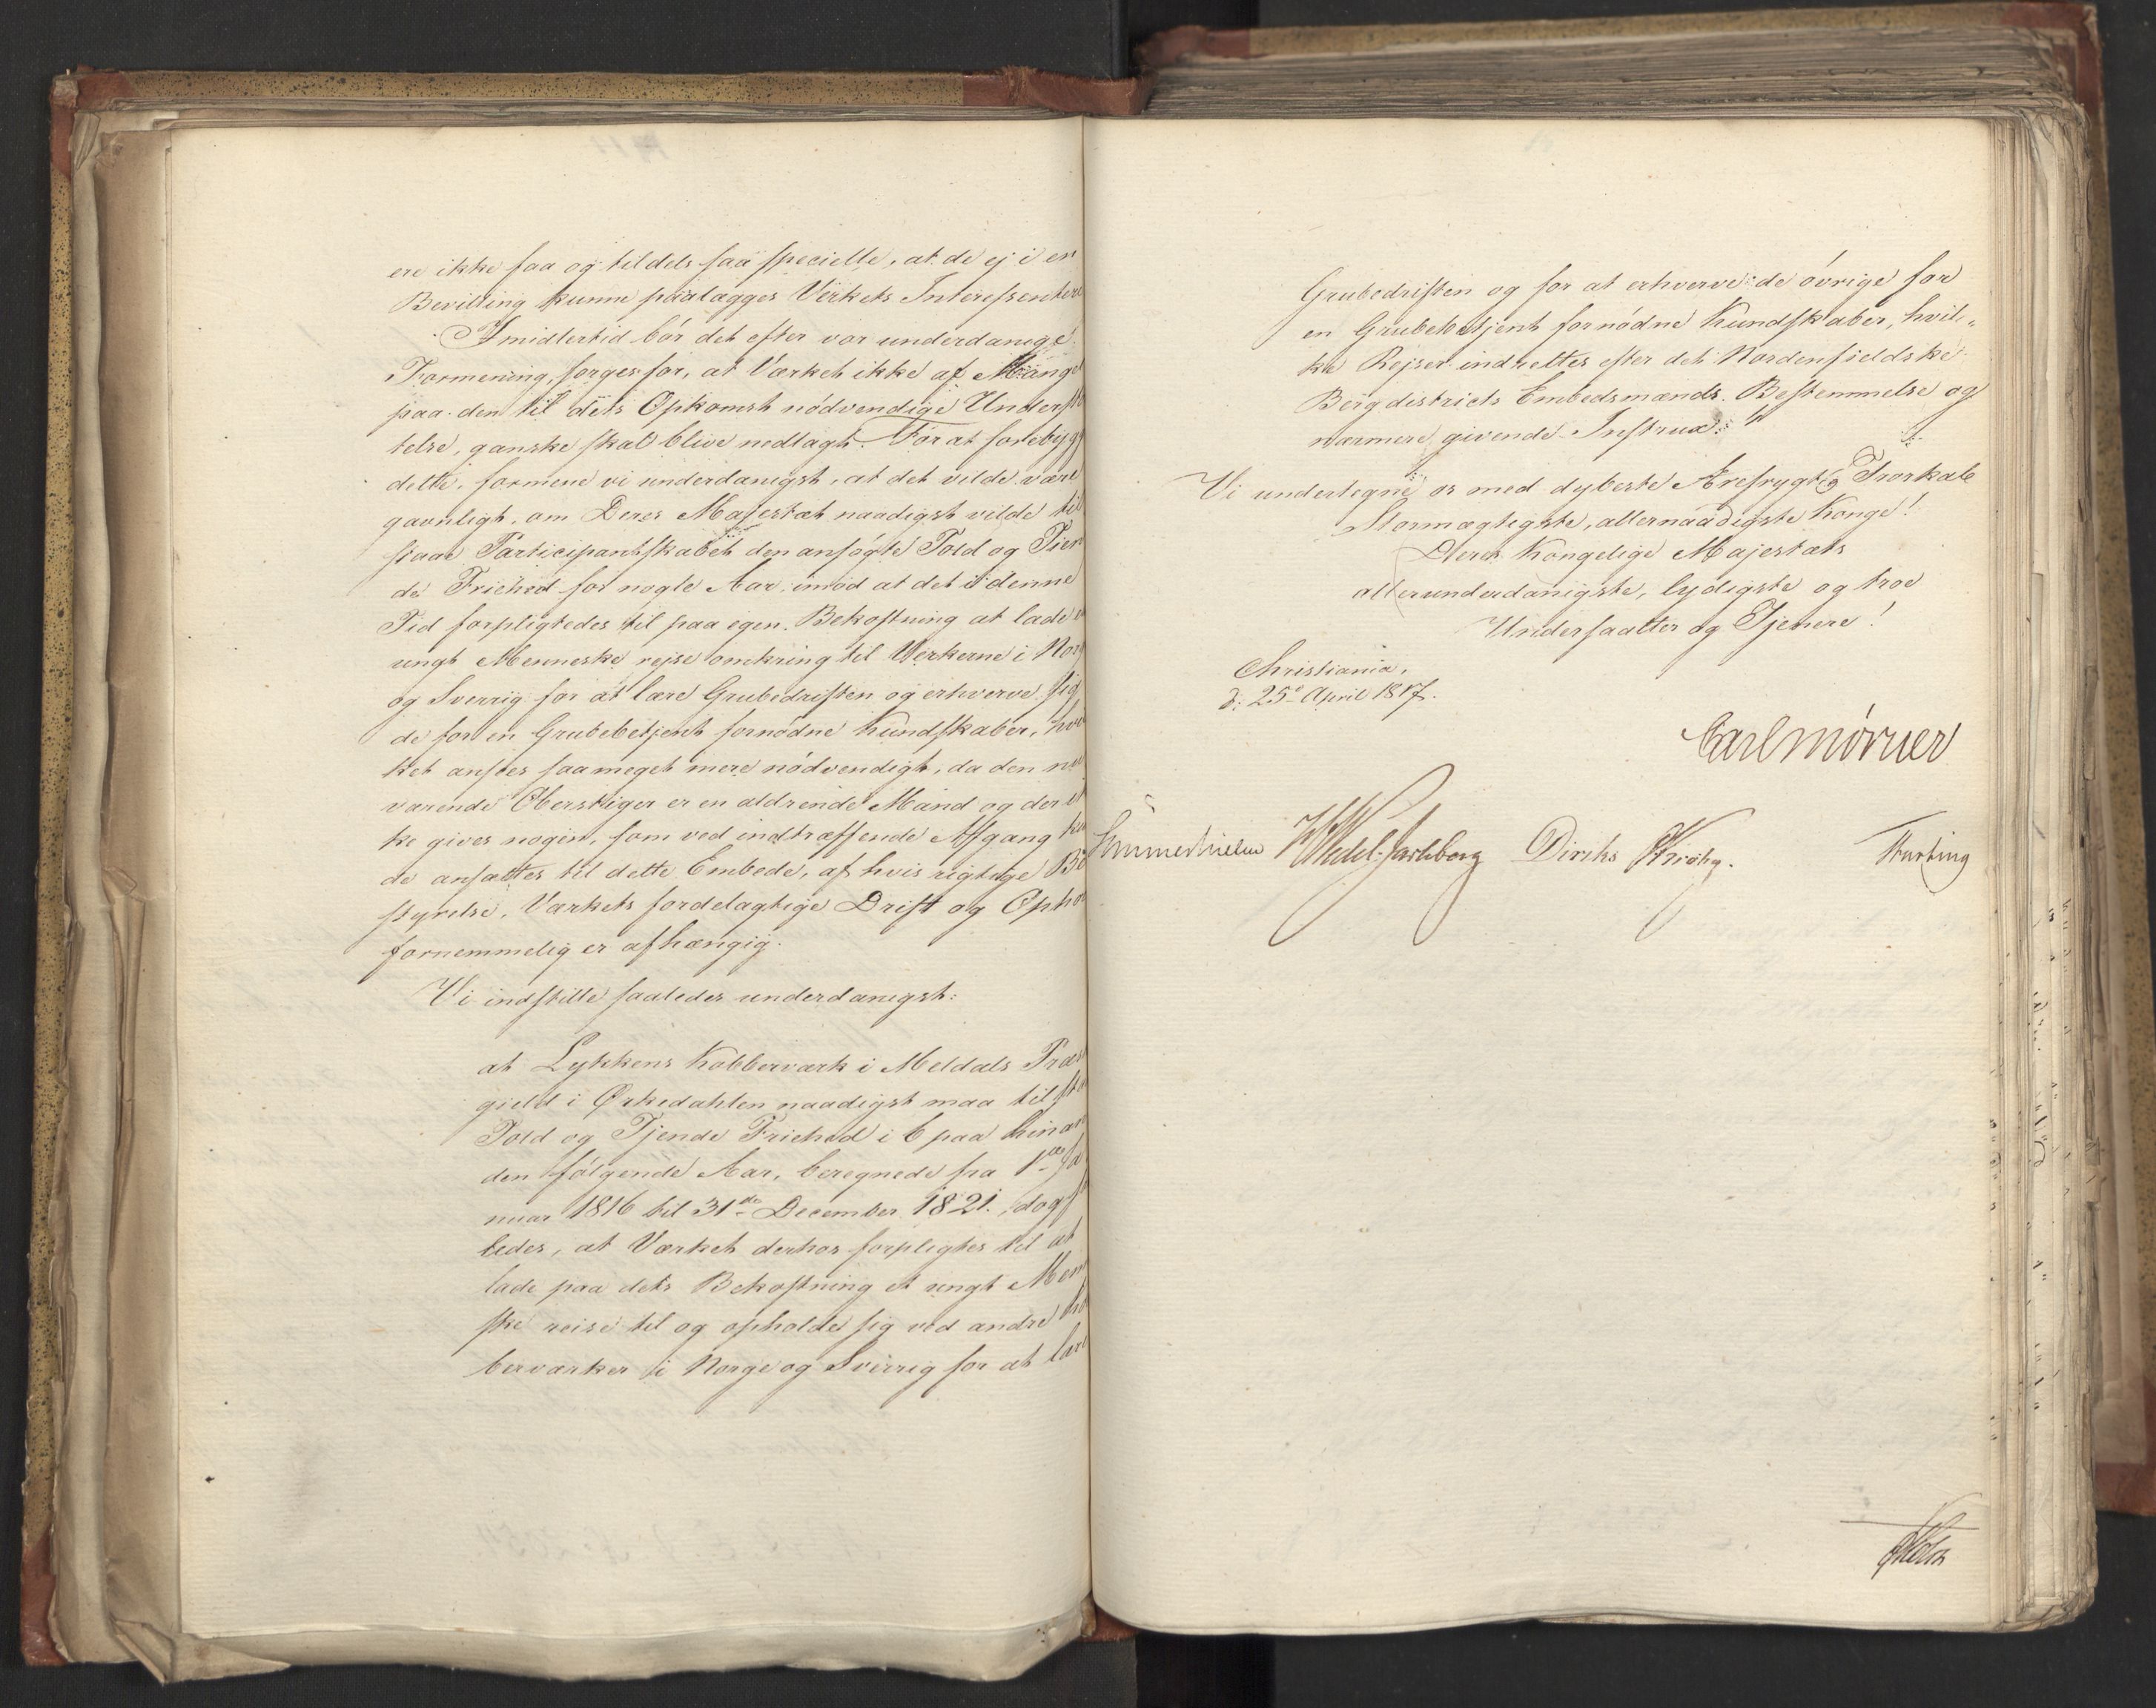 ere ikke faa og tildels saa specielle, at de ej i en
Bevilling kunne paalægges Verkets Interessentere
Imidlertid bör det efter vor underdanige
Formening, sørges for, at Værket ikke af Mangel
paa den til dets Opkomst nödvendige Understö
telse, ganske skal blive nedlagt. For at forebygg
dette, formene vi underdanigst, at det vilde være
gavnligt, om Deres Majestæt naadigst vilde til
staae Participantskabet den ansögte Told og Tien
de Friehed for nogle Aar, imod at det i denne
Tid forpligtedes til paa egen Bekostning at lade e
ungt Menneske rejse omkring til Verkerne i Nor
og Sverrig for at lære Grubedriften og erhverve sig
de for en Grubebetjent fornødne Kundskaber, hvi
ket ansees saameget mere nödvendigt, da den nu
værende Oberstiger er en aldrende Mand og der ik
ke gives nogen, som ved indtræffende Afgang kun
de ansættes til dette Embede, af hvis rigtige Be
styrelse, Værkets fordelagtige Drift og Opkom
fornemmelig er afhængig.
Vi indstille saaledes underdanigst:
at Lykkens Kobberværk i Meldals Præs
gield i Ørkedahlen naadigst maa tilsta
Told og Tjende Friehed i 6 paa hinan
den fölgende Aar, beregnede fra 1ste Ja
nuar 1816 til 31de December 1821, dog saa
ledes, at Værket derhos forpligtes til at
lade paa dets Bekostning et ungt Men
ske reise til og opholde sig ved andre Kob
berværker i Norge og Sverrig for at lære
Grubedriften og for at erhverve de övrige for
en Grubebetjent fornödne Kundskaber, hvil-
ke Rejser indrettes efter det Nordenfieldske
Bergdistricts Embedsmænds Bestemmelse og
nærmere givende Instrux."
Vi undertegne os med dybeste Ærefrygt og Troskab
Stormægtigste, allernaadigste Konge!
Deres Kongelige Majestæts
allerunderdanigste, lydigste og troe
Undersaatter og Tjenere!
Christiania,
d: 25de April 1817.
Carl Mörner
Sommerhielm HWedel-Jarlsberg Diriks Krohg.
Holst